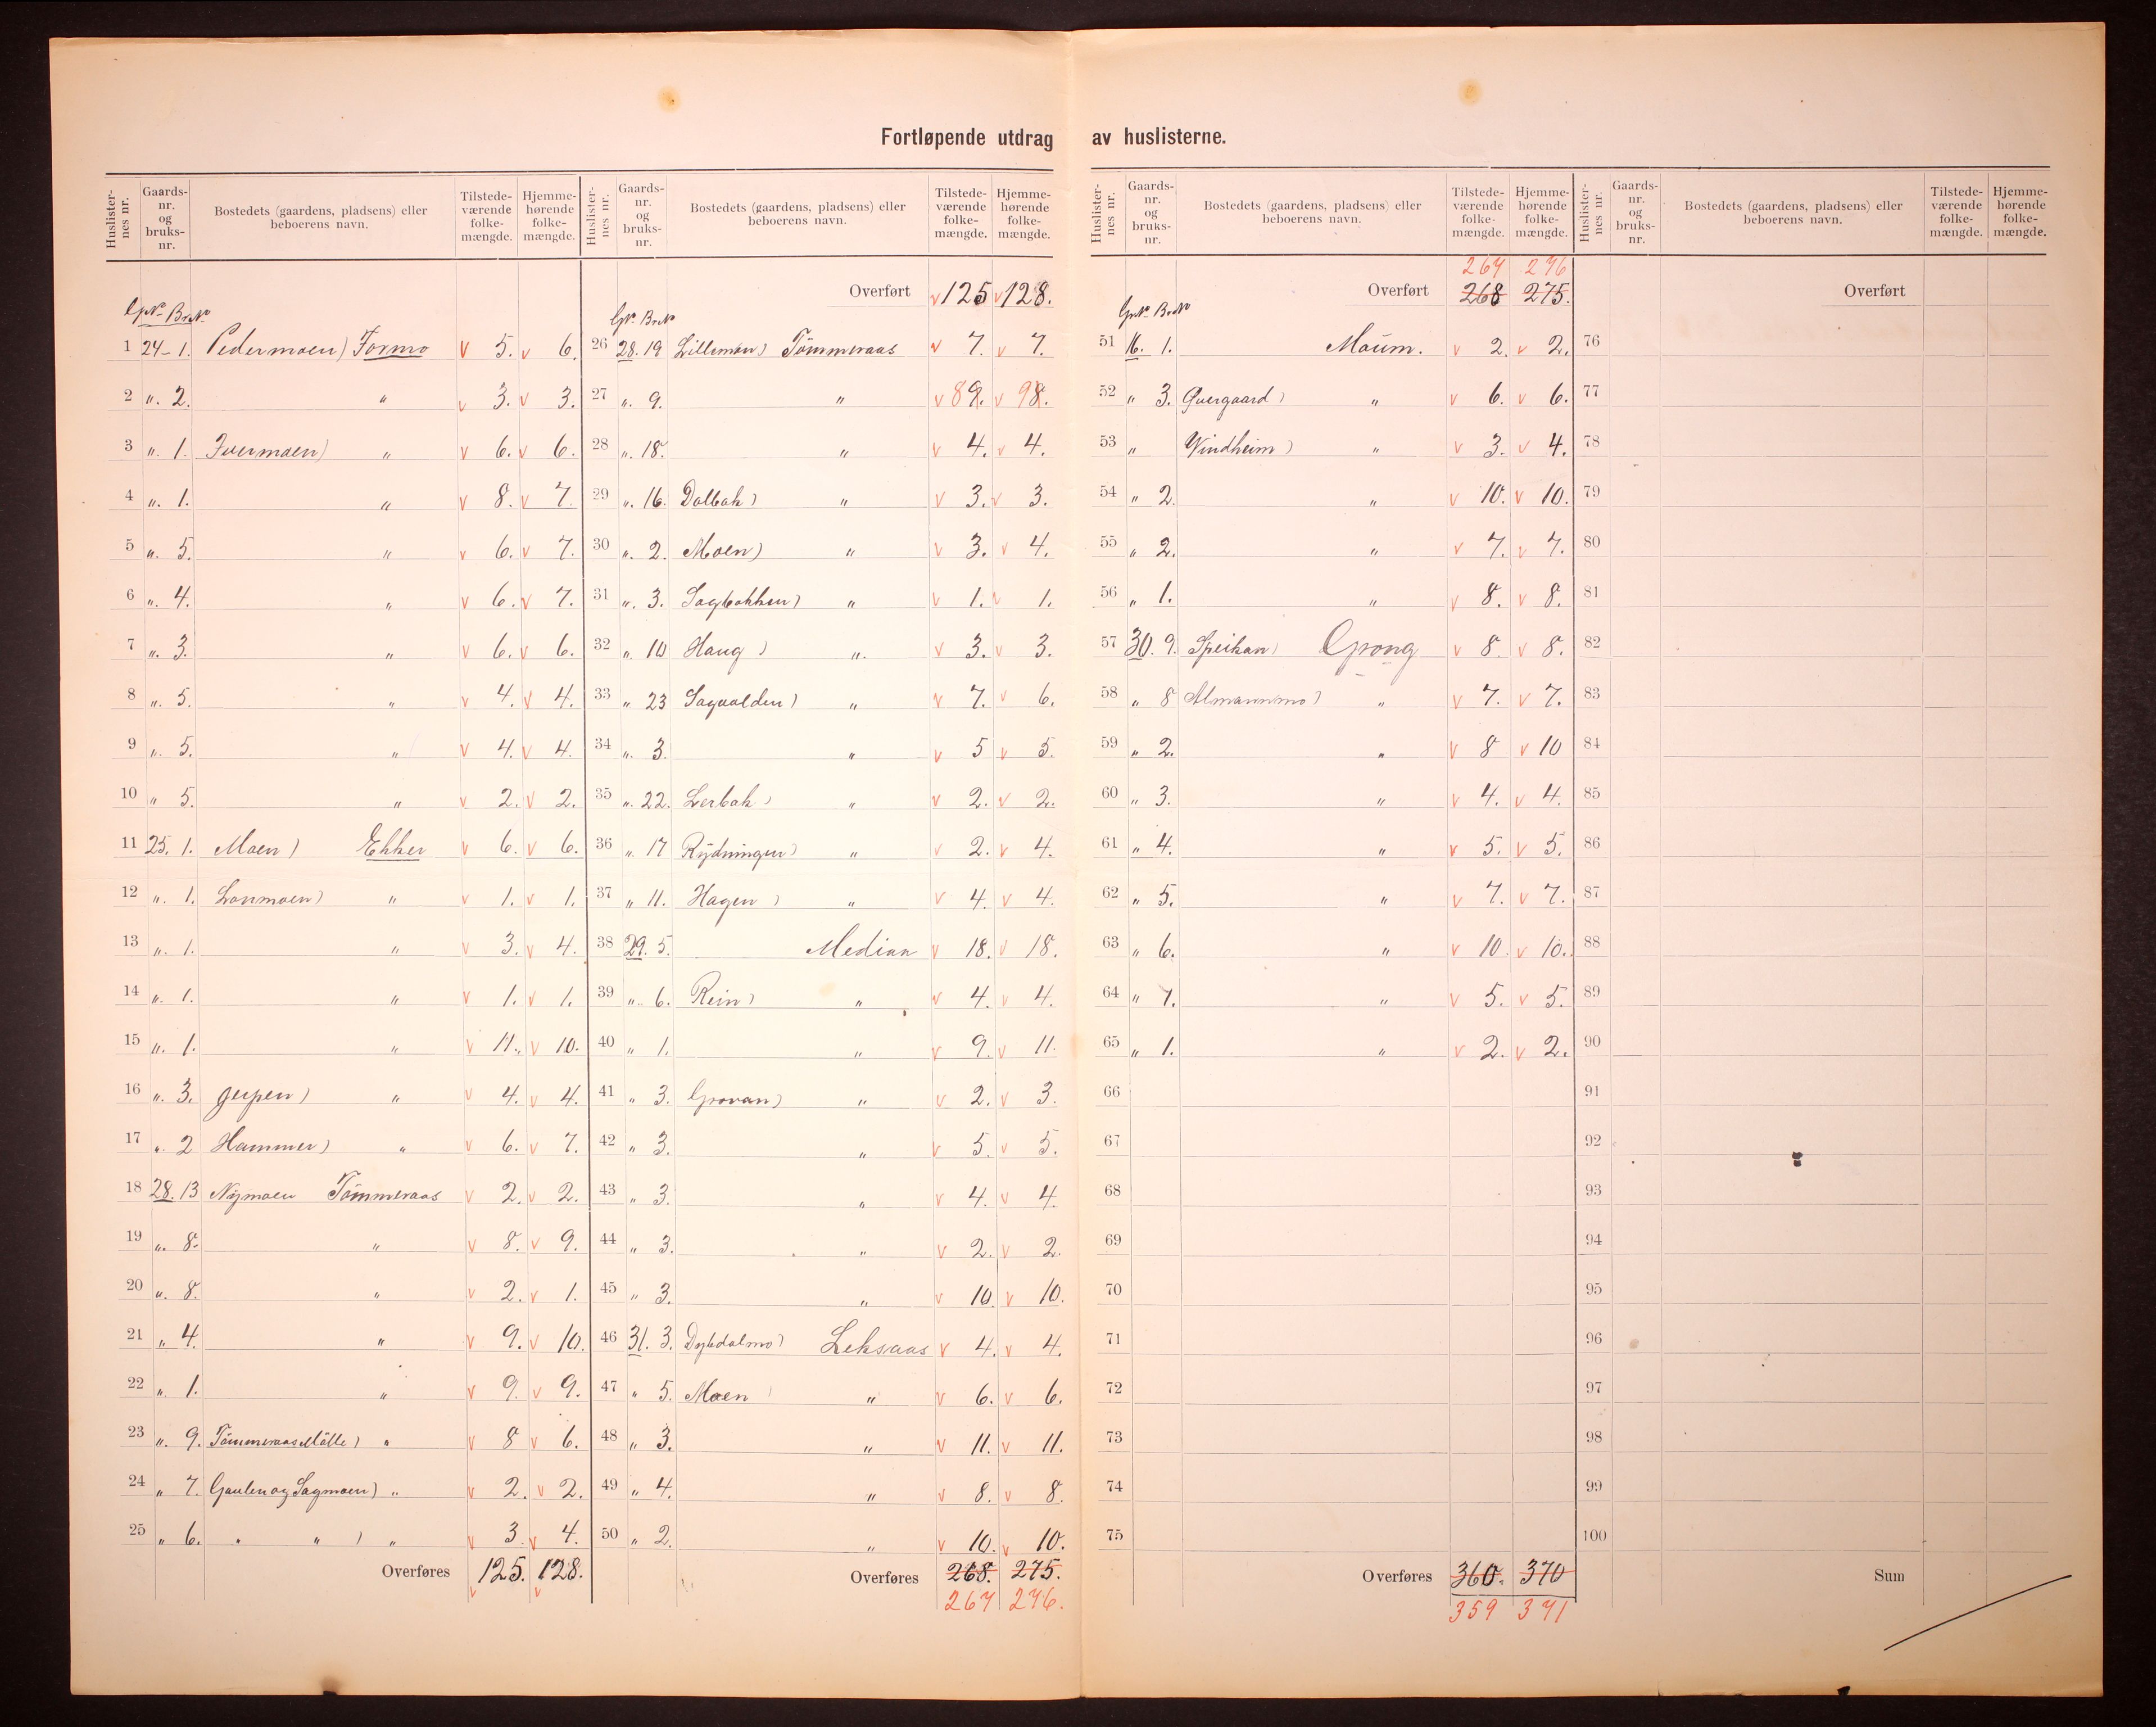 Fortløpende utdrag av huslisterne.
Huslister-nes nr. Gaards-nr. og bruks-nr. Bostedets (gaardens, pladsens) eller beboerens navn. Tilstede-værende folke-mængde. Hjemme-hørende folke-mængde.
GNr. BrNr
1 24-1. Pedermoen) Formo v 5. v 6.
2 ". 2. " v 3. v 3.
3 ". 1. Ivermoen) " v 6. v 6.
4 ". 1. " v 8. v 7.
5 ". 5. " v 6. v 7.
6 ". 4. " v 6. v 7.
7 ". 3. " v 6. v 6.
8 ". 5. " v 4. v 4.
9 ". 5. " v 4. v 4.
10 " 5. " v 2. v 2.
11 25. 1. Moen) Ekker v 6. v 6.
12 ". 1. Lonmoen) " v 1. v 1.
13 ". 1. " v 3. v 4.
14 ". 1. " v 1. v 1.
15 ". 1. " v 11. v 10.
16 ". 3. Jerpen) " v 4. v 4.
17 ". 2 Hammer) " v 6. v 7.
18 28. 13 Nymoen Tömmeraas v 2. v 2.
19 ". 8. " v 8. v 9.
20 ". 8. " v 2. v 1.
21 ". 4. " v 9. v 10.
22 ". 1. " v 9. v 9.
23 ". 9. Tömmeraas Mölle) " v 8 v 6.
24 " 7. Gaulen og Sagmoen) " v 2. v 2.
25 " 6. " " ) " v 3. v 4.
Overføres 125. 128.
v v
Huslister-nes nr. Gaards-nr. og bruks-nr. Bostedets (gaardens, pladsens) eller beboerens navn. Tilstede-værende folke-mængde. Hjemme-hørende folke-mængde.
Overført v 125 v 128.
GNr. BrNr
26 28. 19 Lillemoen) Tömmeraas v 7. v 7.
27 ". 9. " v 89. v 98.
28 ". 18. " v 4. v 4.
29 ". 16. Dalbak) " v 3. v 3.
30 ". 2. Moen) " v 3. v 4.
31 ". 3. Sagbakken) " v 1. v 1.
32 ". 10 Haug) ". v 3. v 3.
33 " 23 Sagvolden) " v 7. v 6.
34 ". 3. " v 5 v 5.
35 ". 22. Lerbak) " v 2. v 2.
36 ". 17 Rydningen) " v 2. v 4.
37 " 11. Hagen) " v 4. v 4.
38 29. 5. Median v 18. v 18.
39 ". 6. Rein) " v 4. v 4.
40 " 1. " v 9. v 11.
41 " 3. Grovan) " v 2. v 3.
42 " 3. " v 5. v 5.
43 " 3. " v 4. v 4.
44 " 3. " v 2. v 2.
45 " 3. " v 10. v 10.
46 31. 3. Dybdalmo) Leksaas v 4. v 4.
47 " 5. Moen) " v 6. v 6.
48 " 3. " v 11. v 11.
49 " 4. " v 8. v 8.
50 " 2. " v 10. v 10.
Overføres 268. 275.
267 276.
Huslister-nes nr. Gaards-nr. og bruks-nr. Bostedets (gaardens, pladsens) eller beboerens navn. Tilstede-værende folke-mængde. Hjemme-hørende folke-mængde.
267 276
Overført 268 275.
GNr. BrNr
51 16. 1. Moüm. v 2. v 2.
52 " 3. Øvergaard) " v 6. v 6.
53 " Vindheim) " v 3. v 4.
54 " 2. " v 10. v 10.
55 " 2. " v 7. v 7.
56 " 1. " v 8. v 8.
57 30. 9. Speikan) Grong v 8. v 8.
58 " 8 Almannmo) " v 7. v 7.
59 " 2. " v 8 v 10
60 " 3. " v 4. v 4.
61 " 4. " v 5. v 5.
62 " 5. " v 7. v 7.
63 " 6. " v 10. v 10.
64 " 7. " v 5. v 5.
65 " 1. " v 2. v 2.
66
67
68
69
70
71
72
73
74
75
Overføres 360. 370
359 371
Huslister-nes nr. Gaards-nr. og bruks-nr. Bostedets (gaardens, pladsens) eller beboerens navn. Tilstede-værende folke-mængde. Hjemme-hørende folke-mængde.
Overført
76
77
78
79
80
81
82
83
84
85
86
87
88
89
90
91
92
93
94
95
96
97
98
99
100
Sum